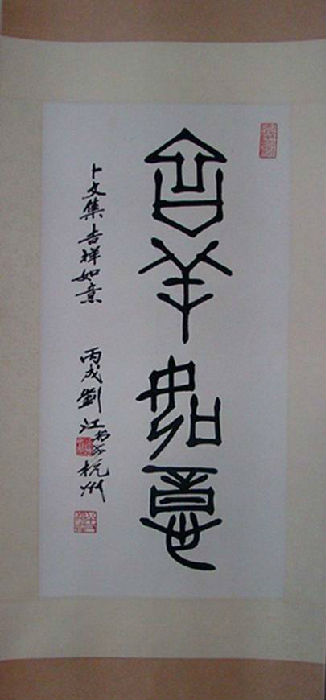 吉羊如意
卜文集吉祥如意
丙戌劉江書於杭州